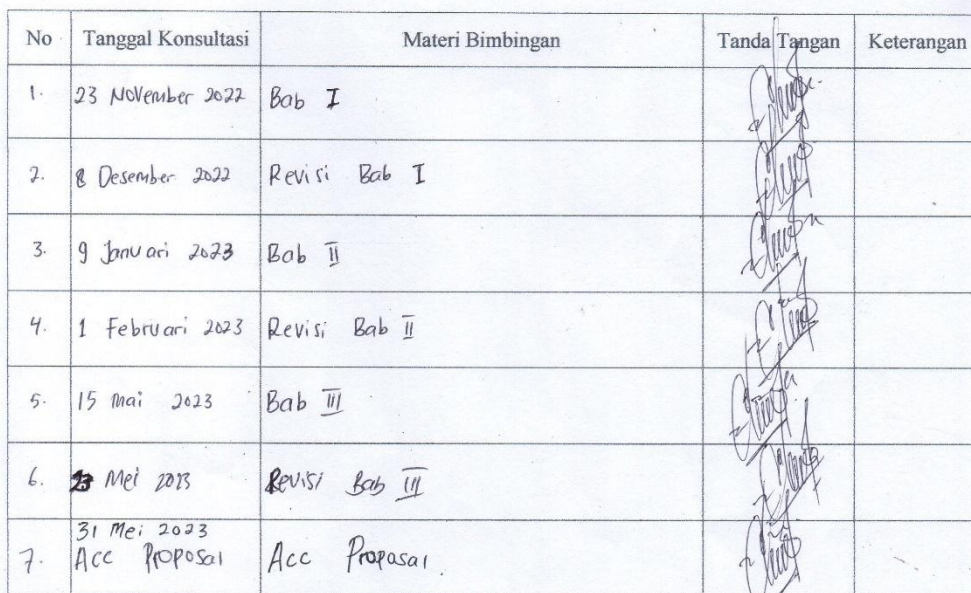 No Tanggal Konsultasi Materi Bimbingan Tanda Tangan Keterangan
1. 23 November 2022 Bab I
2. 8 Desember 2022 Revisi Bab I
3. 9 Januari 2023 Bab II
4. 1 Februari 2023 Revisi Bab II
5. 15 Mai 2023 Bab III
6. 23 Mei 2023 Revisi Bab III
31 Mei 2023
7. Acc Proposal Acc Proposal